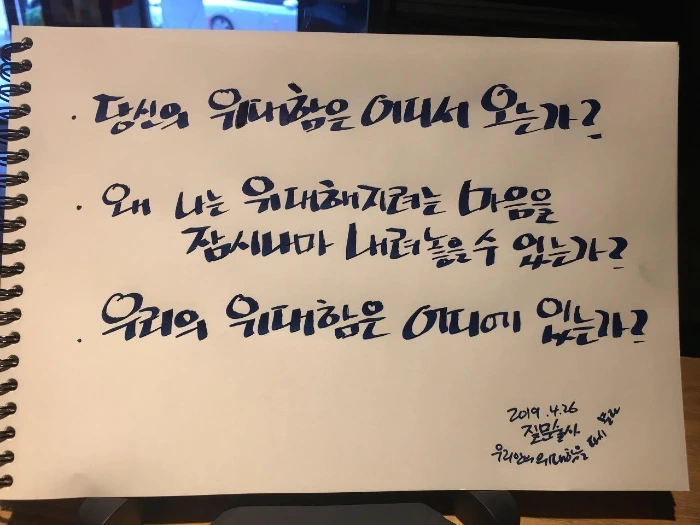 · 당신의 위대함은 어디서 오는가?
· 왜 나는 위대해지려는 마음을
잠시나마 내려놓을 수 있는가?
· 우리의 위대함은 어디에 있는가?
2019.4.26
질문술사
우리안의 위대함을 다시